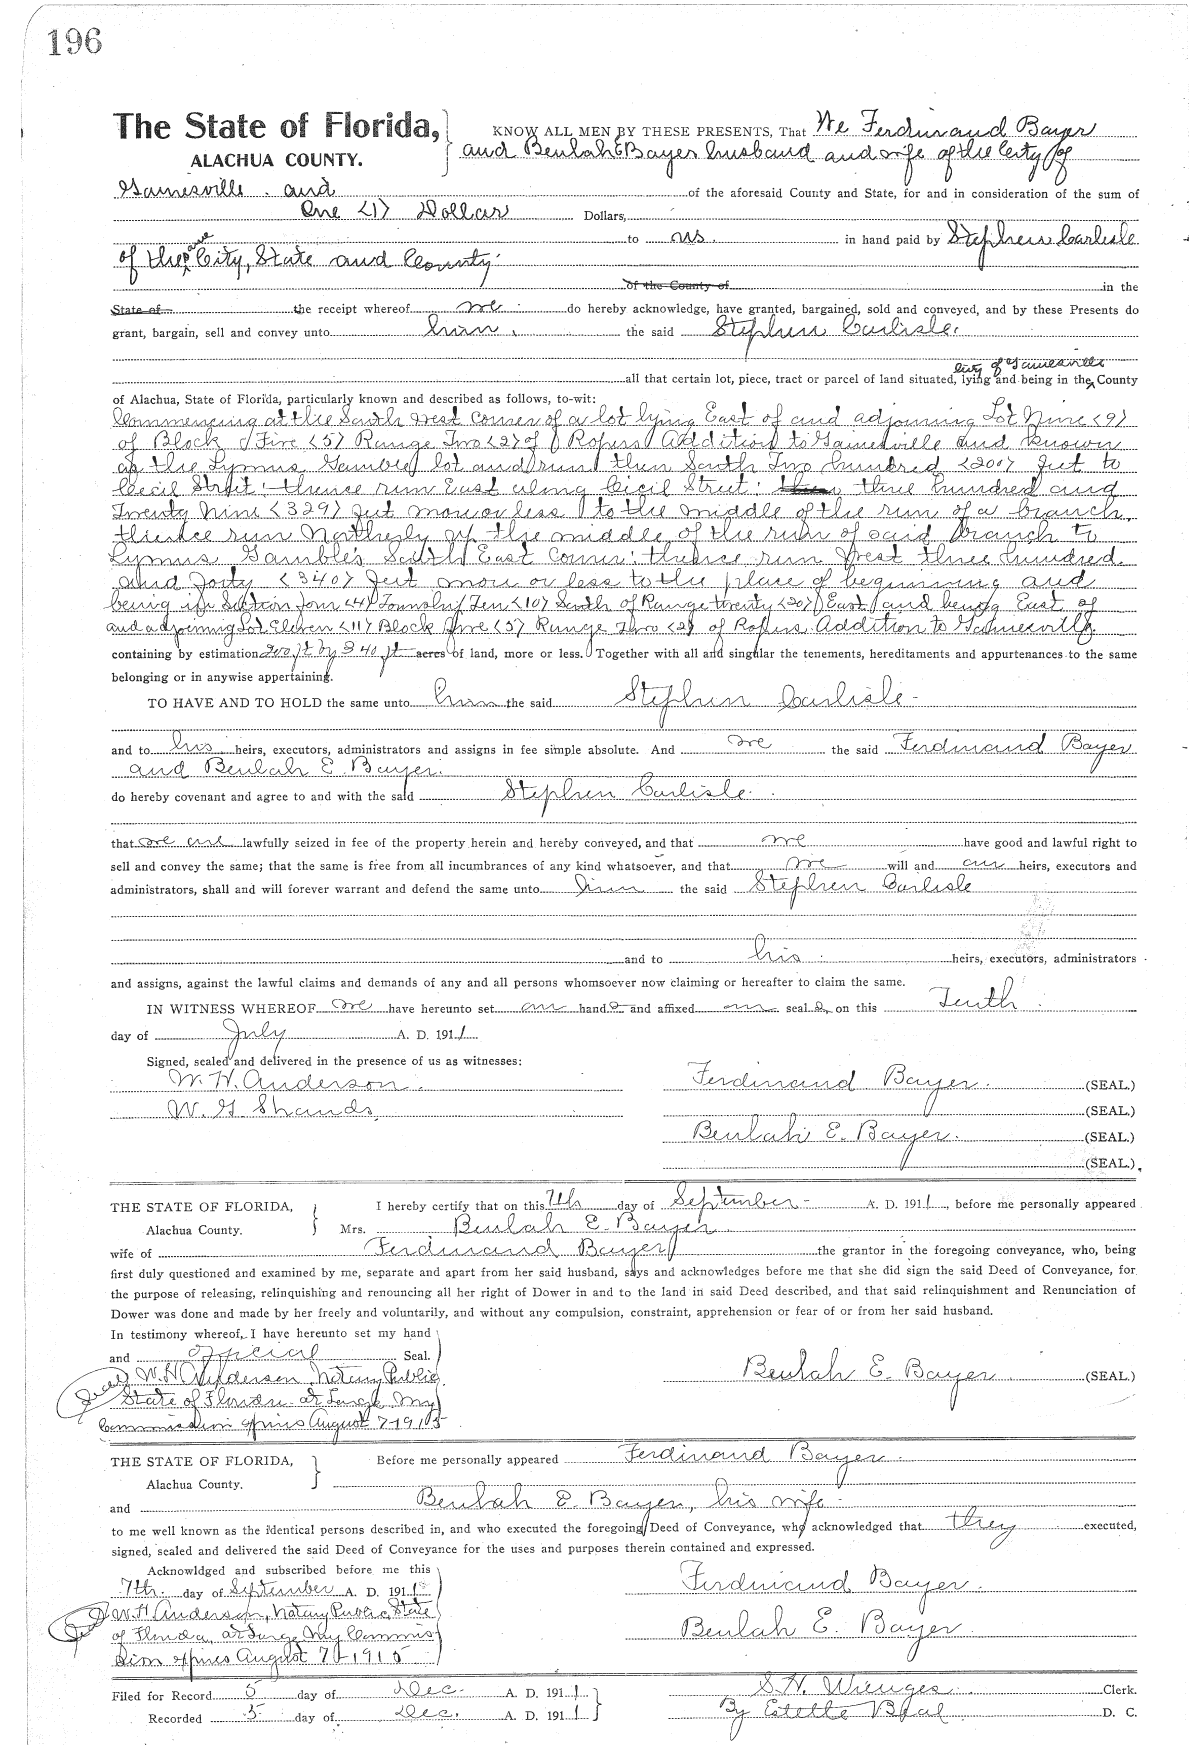 196
The State of Florida, KNOW ALL MEN BY THESE PRESENTS, That We Ferdinand Bayer
ALACHUA COUNTY. and Beulah E Bayer husband and wife of the City of
Gainesville and of the aforesaid County and State, for and in consideration of the sum of
One <1> Dollar Dollars,
to us in hand paid by Stephen Carlisle
of the same City, State and County
of the County of in the
State of the receipt whereof we do hereby acknowledge, have granted, bargained, sold and conveyed, and by these Presents do
grant, bargain, sell and convey unto him, the said Stephen Carlisle.
city of Gainesville
all that certain lot, piece, tract or parcel of land situated, lying and being in the County
of Alachua, State of Florida, particularly known and described as follows, to-wit:
Commencing at the South West corner of a lot lying East of and adjoining Lot Nine <9>
of Block Five <5> Range Two <2> of Ropers Addition to Gainesville and known
as the Lymus Gamble lot and run then South Two hundred <200> feet to
Cecil Street: thence run East along Cecil Street: three hundred and
Twenty Nine <329> feet more or less to the middle of the run of a branch,
thence run Northerly up the middle of the run of said branch to
Lymus Gamble's South East corner: thence run West three hundred
and forty <340> feet more or less to the place of beginning and
being in Section four <4> Township Ten <10> South of Range twenty <20> East and being East of
and adjoining Lot Eleven <11> Block five <5> Range Two <2> of Ropers Addition to Gainesville
containing by estimation 200 ft by 340 ft acres of land, more or less. Together with all and singular the tenements, hereditaments and appurtenances to the same
belonging or in anywise appertaining.
TO HAVE AND TO HOLD the same unto him the said Stephen Carlisle
and to his heirs, executors, administrators and assigns in fee simple absolute. And we the said Ferdinand Bayer
and Beulah E. Bayer.
do hereby covenant and agree to and with the said Stephen Carlisle.
that we are lawfully seized in fee of the property herein and hereby conveyed, and that we have good and lawful right to
sell and convey the same; that the same is free from all incumbrances of any kind whatsoever, and that we will and our heirs, executors and
administrators, shall and will forever warrant and defend the same unto him the said Stephen Carlisle
and to his heirs, executors, administrators
and assigns, against the lawful claims and demands of any and all persons whomsoever now claiming or hereafter to claim the same.
IN WITNESS WHEREOF we have hereunto set our hands and affixed our seals on this Tenth
day of July A. D. 1911.
Signed, sealed and delivered in the presence of us as witnesses:
W. H. Anderson. Ferdinand Bayer. (SEAL.)
W. G. Shands, (SEAL.)
Beulah E. Bayer. (SEAL.)
(SEAL.)
THE STATE OF FLORIDA, I hereby certify that on this 7th day of September A. D. 1911, before me personally appeared
Alachua County. Mrs. Beulah E. Bayer
wife of Ferdinand Bayer the grantor in the foregoing conveyance, who, being
first duly questioned and examined by me, separate and apart from her said husband, says and acknowledges before me that she did sign the said Deed of Conveyance, for
the purpose of releasing, relinquishing and renouncing all her right of Dower in and to the land in said Deed described, and that said relinquishment and Renunciation of
Dower was done and made by her freely and voluntarily, and without any compulsion, constraint, apprehension or fear of or from her said husband.
In testimony whereof, I have hereunto set my hand
and official Seal.
Seal W. H. Anderson Notary Public Beulah E. Bayer (SEAL.)
State of Florida at Large My
Commission expires August 7 1915
THE STATE OF FLORIDA, Before me personally appeared Ferdinand Bayer
Alachua County.
and Beulah E. Bayer, his wife
to me well known as the identical persons described in, and who executed the foregoing Deed of Conveyance, who acknowledged that they executed,
signed, sealed and delivered the said Deed of Conveyance for the uses and purposes therein contained and expressed.
Acknowldged and subscribed before me this
7th. day of September A. D. 1911 Ferdinand Bayer.
Seal W. H. Anderson, Notary Public, State
of Florida, at Large My Commis Beulah E. Bayer.
sion expires August 7 1915
Filed for Record 5 day of Dec. A. D. 1911 S. H. Wienges Clerk.
Recorded 5 day of Dec. A. D. 1911 By Estelle Beal D. C.